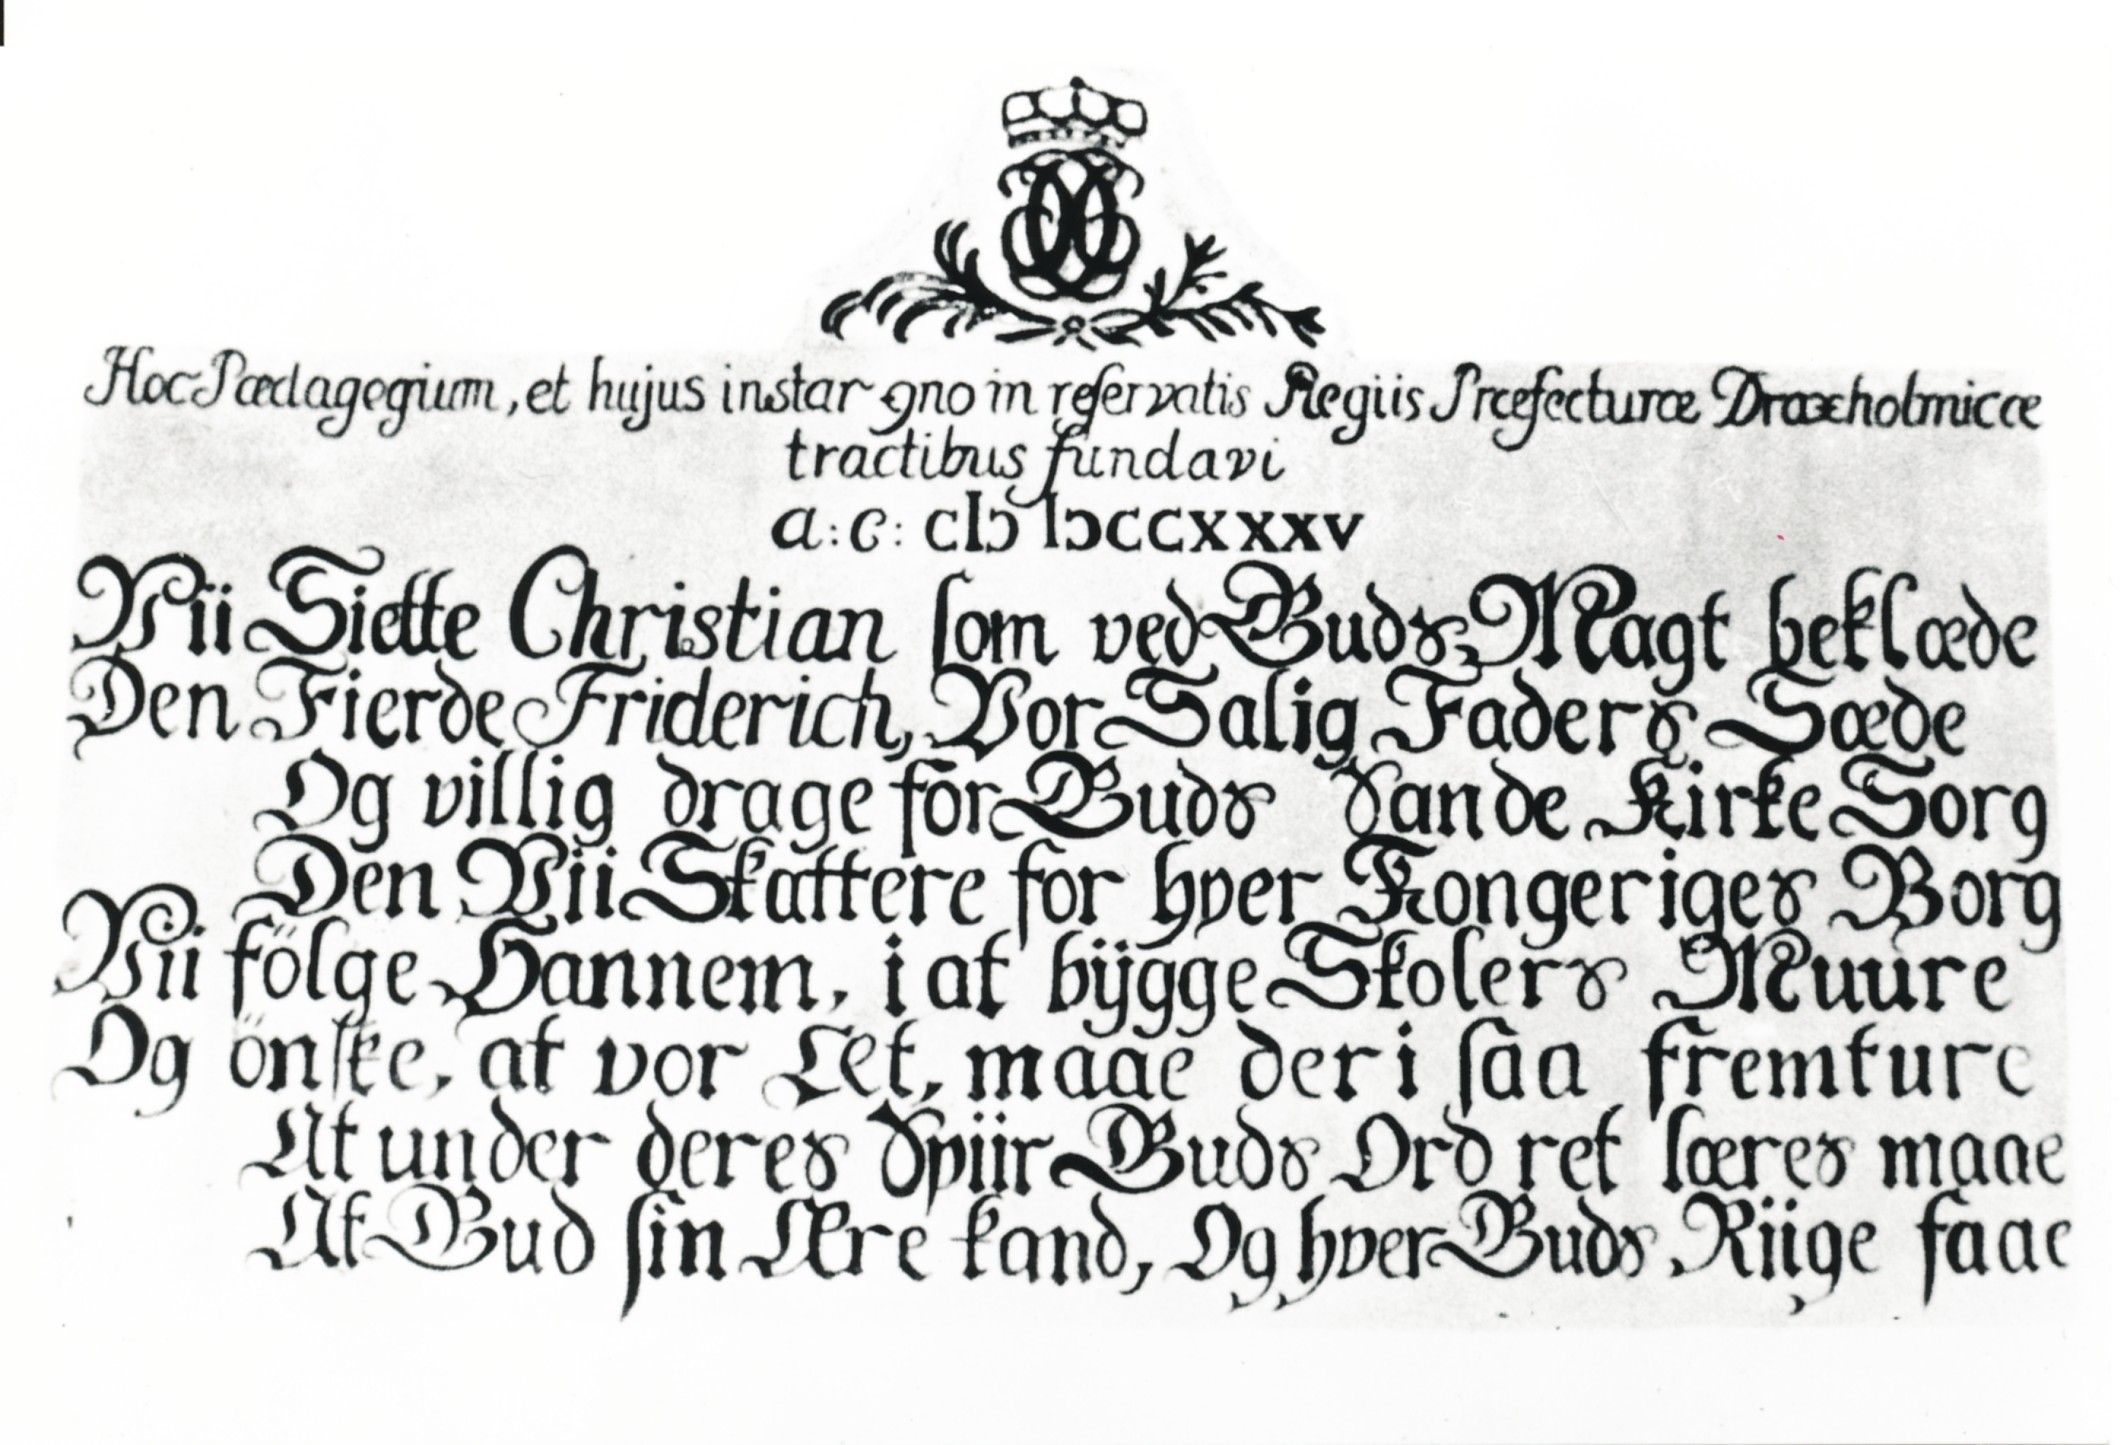 Hoc Pædagogium, et hujus instar 9no in reservatis Regiis Præfecturæ Draxholmicæ
tractibus fundavi
a: c: cIɔ Iɔccxxxv
Vii Siette Christian som ved Guds Magt beklæde
Den Fierde Friderich, Vor Salig Faders Sæde
Og villig drage för Guds Sande Kirke Sorg
Den Vii Skattere for hver Kongeriges Borg
Vii fölge Hannem, i at bÿgge Skolers Muure
Og önske, at vor Æet, maae der i saa fremture
At under deres Spiir Guds Ord ret læres maae
At Gud sin Ære kand, Og hver Guds Riige faae